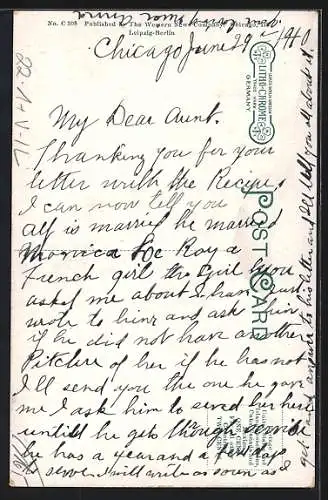 No. C 208 Published by The Western News Company, Chicago, Ill.
Leipzig-Berlin
Chicago June 29
My Dear Aunt.
Thanking you for your
letter with the Recipe,
I can now tell you
Alf is married he married
Monica Le Roy a
French girl the girl you
asked me about I have just
wrote to him and ask him
if he did not have another
Pitcture of her if he has not
I'll send you the one he gave
me I ask him to send her here
untill he gets though service
he has a year and a few days
to serve. I will write as soon as I
get and answer to his letter and I'll tell you all about it.
LITHO-CHROME
GERMANY
POST CARD